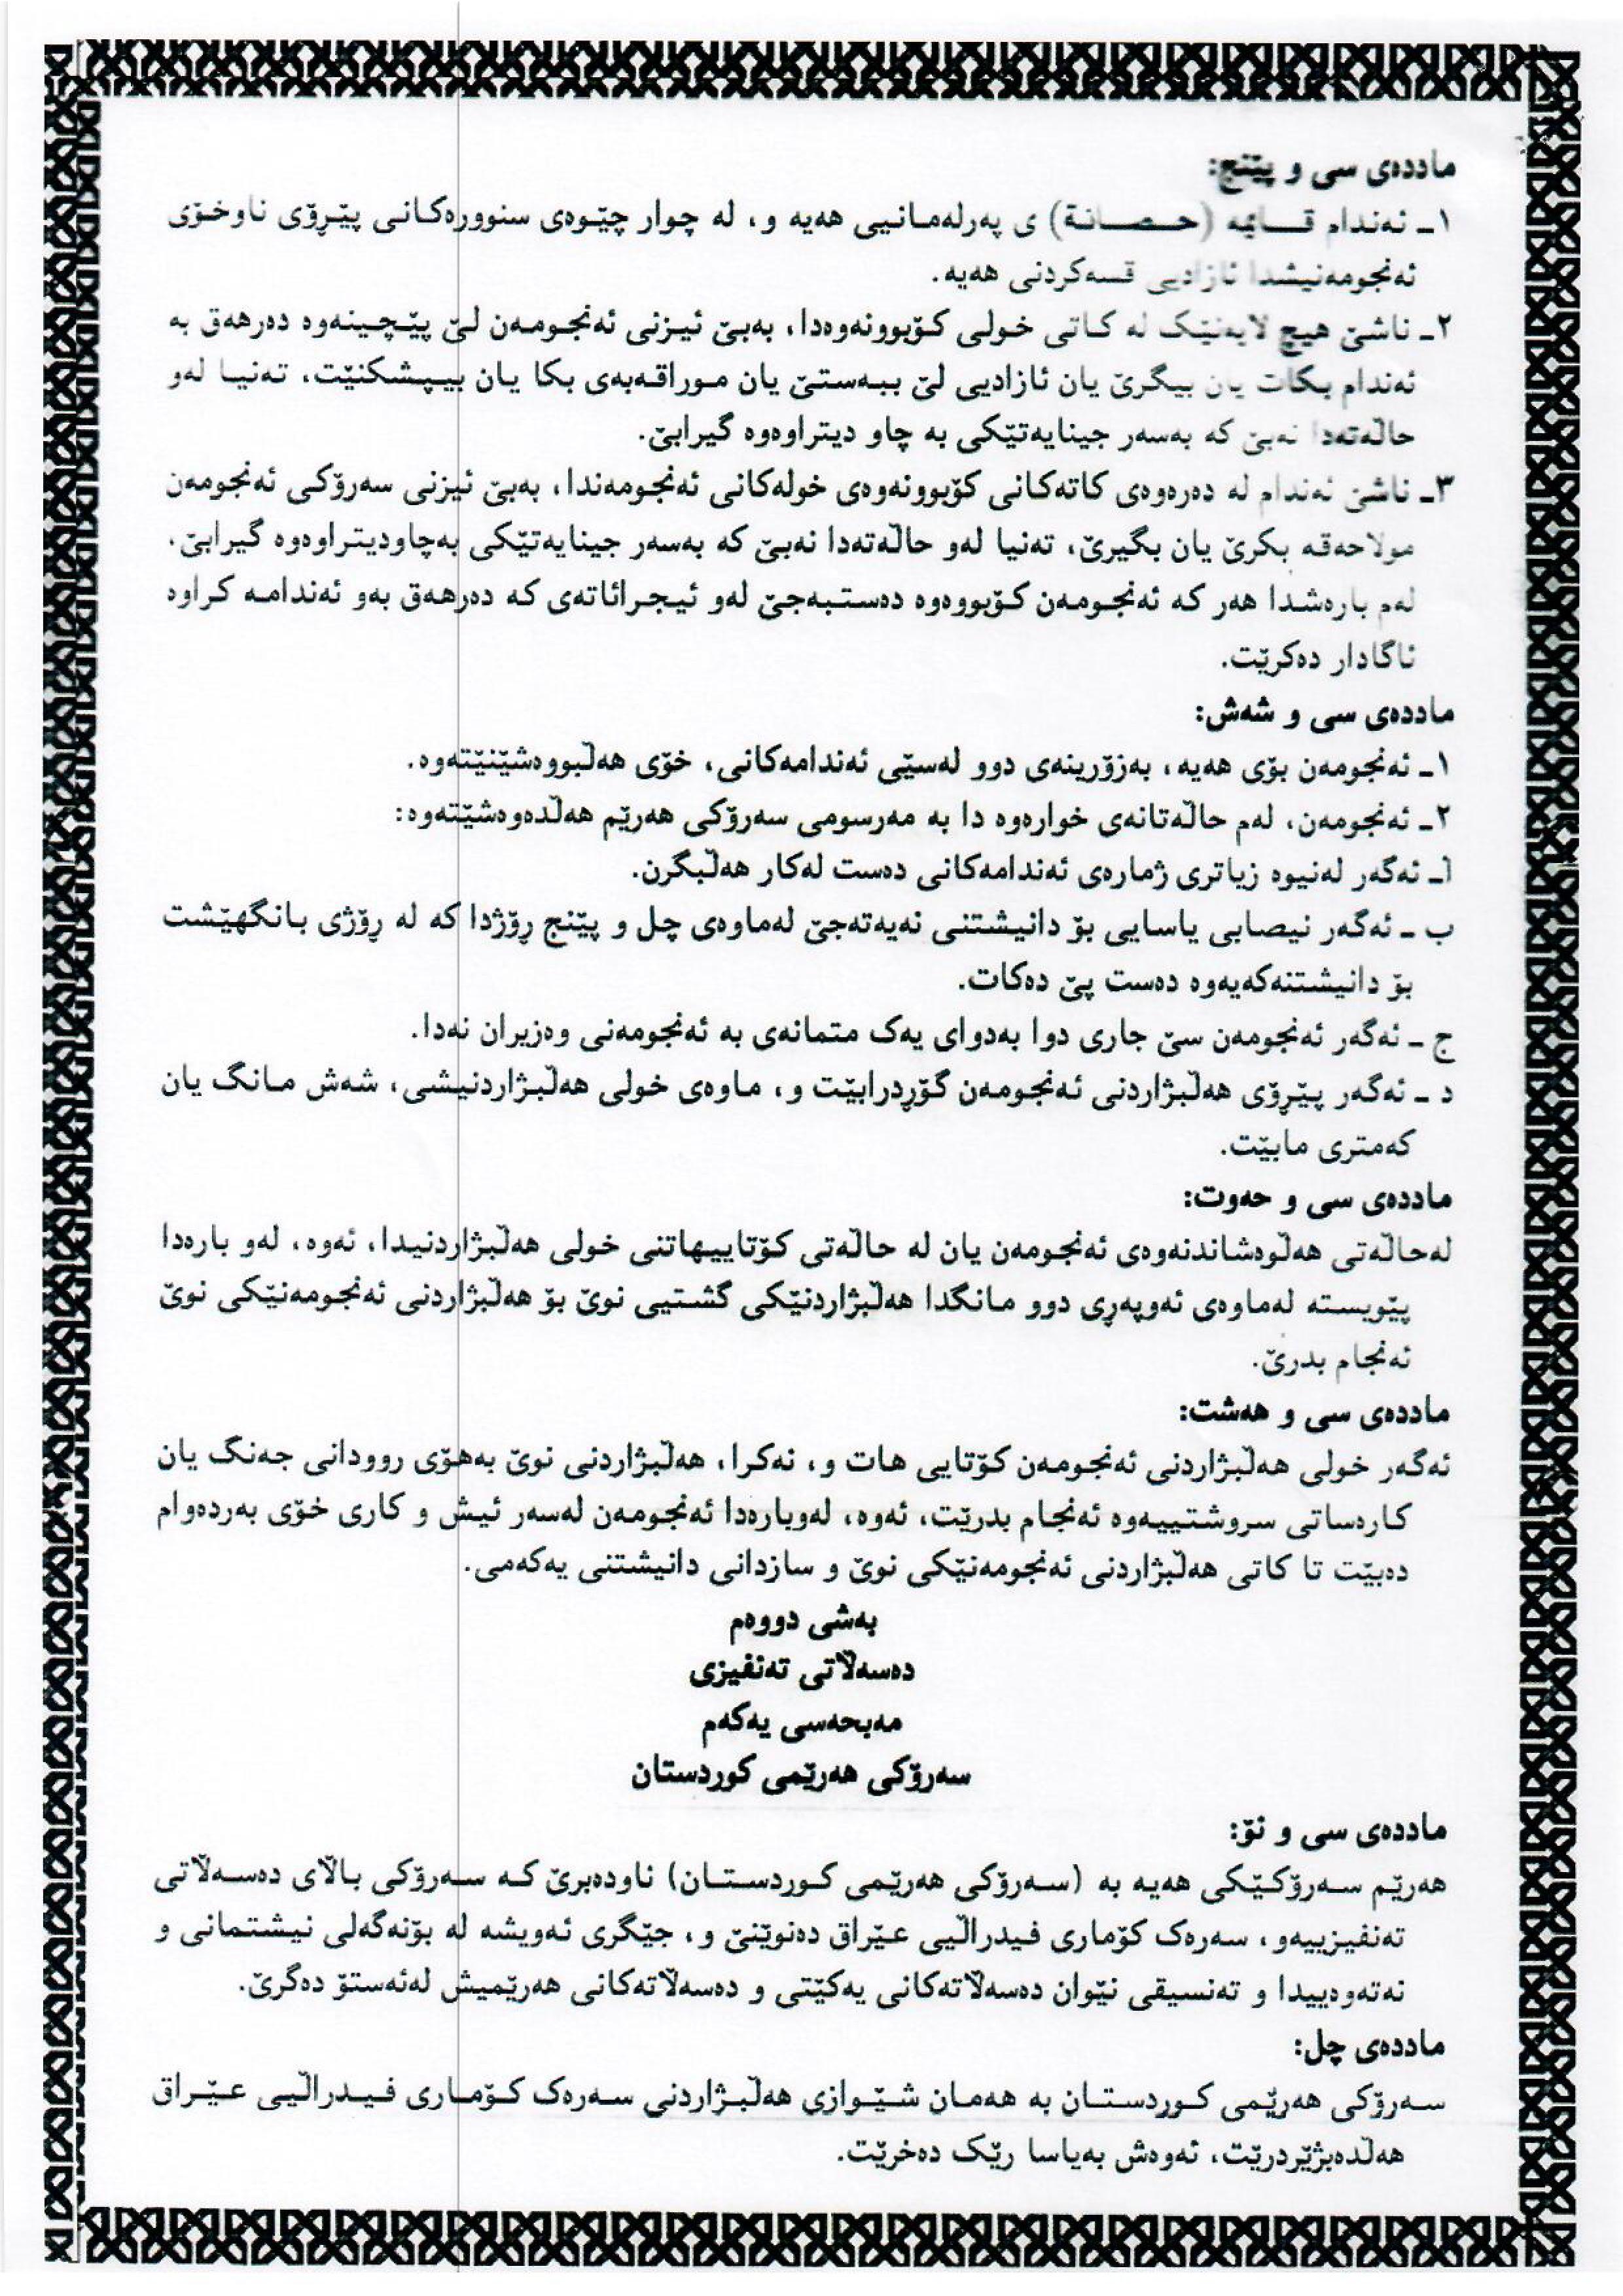 ماددەی سی و پێنج:
١ـ ئەندام قـــایمە (حـــصـــانة) ی پەرلەمـانـیی هەیە و، لە چوار چێـوەی سنوورەکـانـی پێـڕۆی ناوخـۆی
ئەنجومەنیشدا ئازادیی قسەکردنی هەیە.
٢ـ ناشێ هیچ لایەنێک لە کـاتی خولی کـۆبوونەوەدا، بەبێ ئیـزنی ئەنجـومەن لـێ پێـچـینەوە دەرهەق بە
ئەندام بـکات یان بیگرێ یان ئازادیی لـێ ببەستێ یان مـوراقـەبەی بکا یان بیـپـشکنێت، تەنیـا لەو
حاڵەتەدا نەبێ کە بەسەر جینایەتێکی بە چاو دیتراوەوە گیرابێ.
٣ـ ناشێ ئەندام لە دەرەوەی کاتەکانی کۆبوونەوەی خولەکانی ئەنجـومەندا، بەبێ ئیزنی سەرۆکی ئەنجومەن
مولاحەقە بکرێ یان بگیرێ، تەنیا لەو حاڵەتەدا نەبێ کە بەسەر جینایەتێکی بەچاودیتراوەوە گیرابێ.
لەم بارەشدا هەر کە ئەنجـومەن کـۆبووەوە دەستـبەجێ لەو ئیـجرائاتەی کە دەرهەق بەو ئەندامـە کراوە
ئاگادار دەکرێت.
ماددەی سی و شەش:
١ـ ئەنجومەن بۆی هەیە، بەزۆرینەی دوو لەسێی ئەندامەکانی، خۆی هەڵبووەشێنێتەوە.
٢ـ ئەنجومەن، لەم حاڵەتانەی خوارەوە دا بە مەرسومی سەرۆکی هەرێم هەڵدەوەشێتەوە:
أـ ئەگەر لەنیوە زیاتری ژمارەی ئەندامەکانی دەست لەکار هەڵبگرن.
ب ـ ئەگەر نیصابی یاسایی بۆ دانیشتنی نەیەتەجێ لەماوەی چل و پێنج ڕۆژدا کە لە ڕۆژی بـانگهێشت
بۆ دانیشتنەکەیەوە دەست پێ دەکات.
ج ـ ئەگەر ئەنجومەن سێ جاری دوا بەدوای یەک متمانەی بە ئەنجومەنی وەزیران نەدا.
د ـ ئەگەر پێـڕۆی هەڵبژاردنی ئەنجـومەن گۆڕدرابێت و، مـاوەی خولی هەڵبـژاردنیـشی، شەش مـانگ یان
کەمتری مابێت.
ماددەی سی و حەوت:
لەحاڵەتی هەڵوەشاندنەوەی ئەنجـومەن یان لە حاڵەتی کۆتاییهاتنی خولی هەڵبژاردنیدا، ئەوە، لەو بارەدا
پێویستە لەماوەی ئەوپەڕی دوو مـانگدا هەڵبژاردنێکی گشتیی نوێ بۆ هەڵبـژاردنی ئەنجـومەنێکی نوێ
ئەنجام بدرێ.
ماددەی سی و هەشت:
ئەگەر خولی هەڵبژاردنی ئەنجومەن کۆتایی هات و، نەکرا، هەڵبژاردنی نوێ بەهۆی روودانی جەنگ یان
کارەساتی سروشتییەوە ئەنجام بدرێت، ئەوە، لەوبارەدا ئەنجومەن لەسەر ئیش و کاری خۆی بەردەوام
دەبێت تا کاتی هەڵبژاردنی ئەنجومەنێکی نوێ و سازدانی دانیشتنی یەکەمی.
بەشی دووەم
دەسەڵاتی تەنفیزی
مەبحەسی یەکەم
سەرۆکی هەرێمی کوردستان
ماددەی سی و نۆ:
هەرێم سـەرۆکـێکی هەیـە بە (سـەرۆکی هەرێمی کـوردسـتـان) ناودەبرێ کـە سـەرۆکی بـاڵای دەسـەڵاتی
تەنفیزییەو، سەرەک کۆماری فیدراڵیی عێراق دەنوێنێ و، جێگری ئەویشە لە بۆنەگەلی نیشتمانی و
نەتەوەییدا و تەنسیقی نێوان دەسەڵاتەکانی یەکێتی و دەسەڵاتەکانی هەرێمیش لەئەستۆ دەگرێ.
ماددەی چل:
سـەرۆکی هەرێمی کـوردسـتـان بە هەمـان شـێـوازی هەڵبـژاردنی سـەرەک کـۆمـاری فـیـدراڵیی عـێـراق
هەڵدەبژێردرێت، ئەوەش بەیاسا رێک دەخرێت.